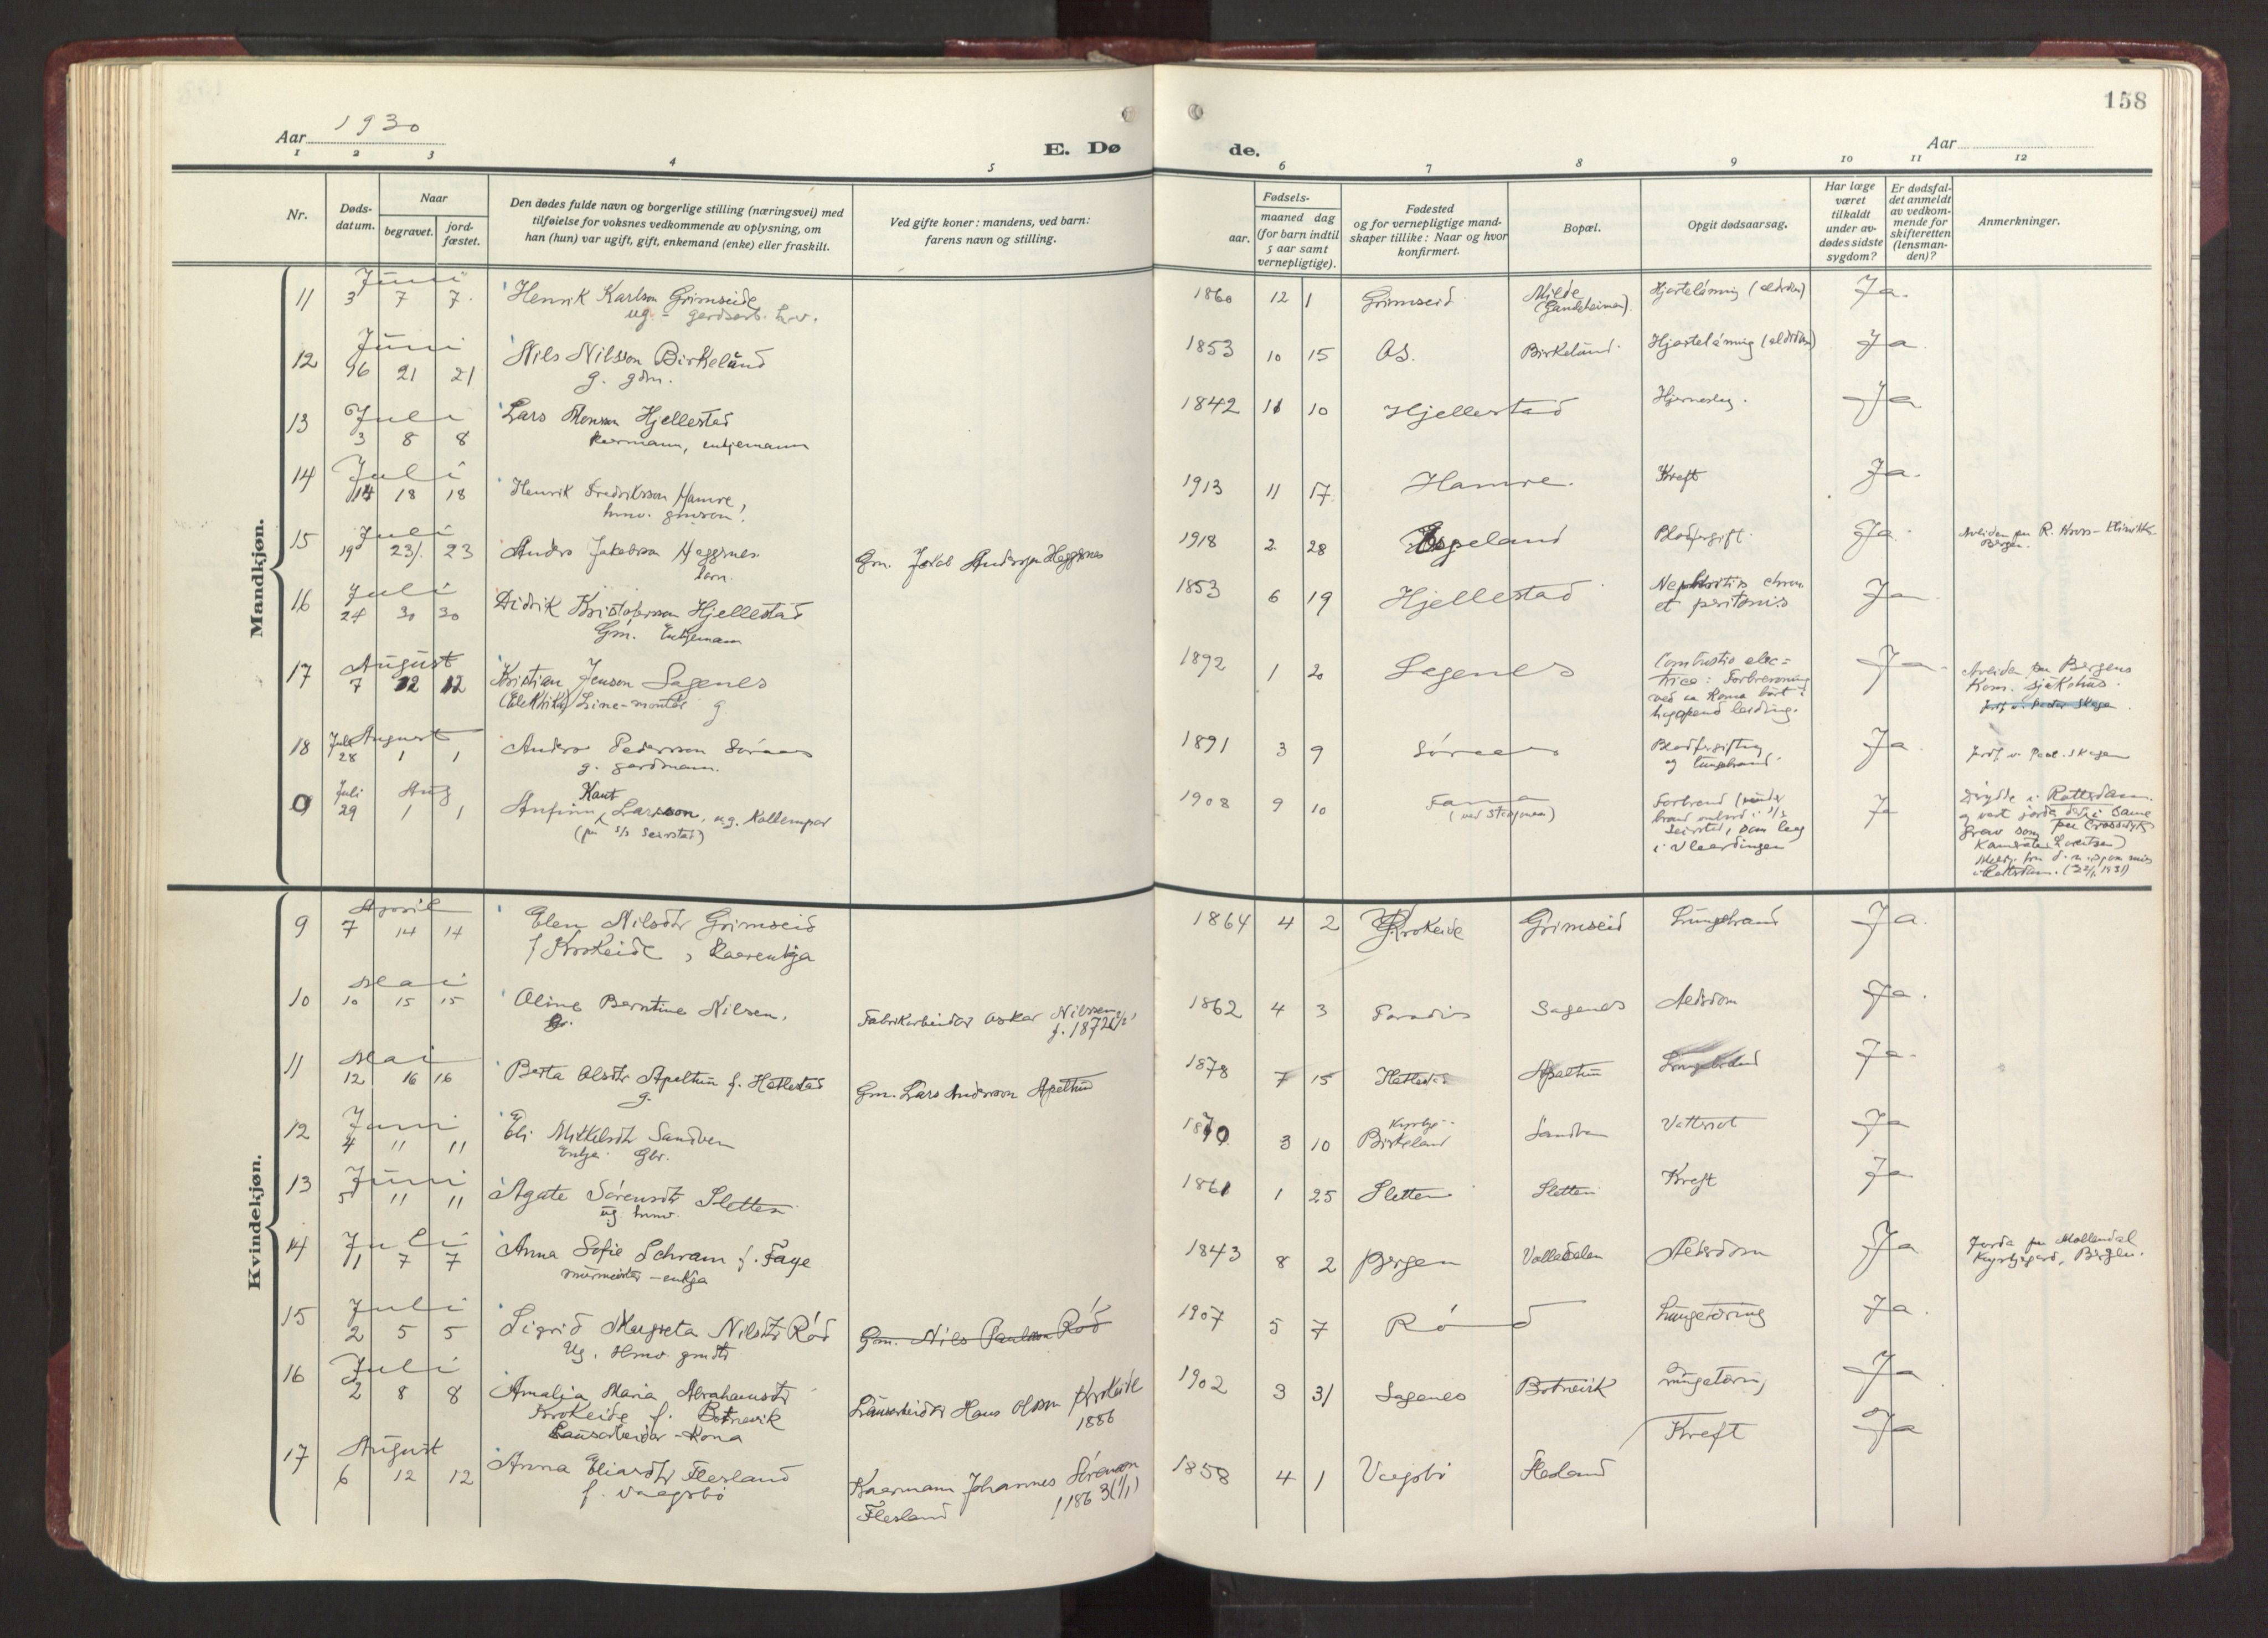 158
Aar 1930
E. Dø
de.
Aar
1 2 3 4 5 6 7 8 9 10 11 12
Nr.
Døds-
datum.
Naar
begravet.
jord-
fæstet.
Den dødes fulde navn og borgerlige stilling (næringsvei) med
tilføielse for voksnes vedkommende av oplysning, om
han (hun) var ugift, gift, enkemand (enke) eller fraskilt.
Ved gifte koner: mandens, ved barn:
farens navn og stilling.
Fødsels-
aar.
maaned dag
(for barn indtil
5 aar samt
vernepligtige).
Fødested
og for vernepligtige mand-
skaper tillike: Naar og hvor
konfirmert.
Bopæl.
Opgit dødsaarsag.
Har læge
været
tilkaldt
under av-
dødes sidste
sygdom?
Er dødsfal-
det anmeldt
av vedkom-
mende for
skifteretten
(lensman-
den)?
Anmerkninger.
Mandkjøn.
11 Juni 3 7 7. Henrik Karlson Grimseide 1860 12 1 Grimseid Milde Hjartelåming (alderdom) Ja.
ug. - gardsarb.
12 Juni 16 21 21 Nils Nilsson Birkeland 1853 10 15 Os. Birkeland Hjartelåming Ja
g. gdm.
13 Juli 3 8 8 Lars Monsson Hjellestad 1842 11 10 Hjellestad Hjerneslag. Ja
kaarmann, enkjemann
14 Juli 14 18 18 Henrik Fredriksson Hamre 1913 11 17 Hamre. Kreft Ja.
hmv. gmson
15 Juli 19 23 23 Anders Jakobsson Heggenes Gm. Jakob Andersson Heggnes 1918 2 28 Espeland Blodforgift. Ja
barn.
Bergen.
16 Juli 24 30 30 Didrik Kristofersson Hjellestad 1853 6 19 Hjellestad Nephritis chron. Ja
Gm. Enkjemann
et peritonis
17 August 7 12 12 Kristian Jenson Sagenes 1892 1 20 Sagenes Combustio elec= Ja
(Elektriker) Line-montør g
trica: Forbrenning
ved aa koma bort i
høgspend leidning.
Avliden paa Bergens
Kom. sjukehus.
18 Juli 28 August 1 1 Anders Pedersson Søraas 1891 3 9 Søraas Blodforgiftning Ja Jordf. v. Paul. Skagen
g. gardmann.
og lungebrand
0 Juli 29 Aug 1 1 Anfinn Knut Larsson, ug. Kallempar 1908 9 10 Fana Ja
(paa s/s Seirstad)
(ved Stedjona)
Forbrend (under
brand ombord i s/s
Seirstad, som laag
i Vlaardingen
Døydde i Rotterdam.
og vart jorda der i same
grav som
Kamerat Lorentzen)
i Rotterdam. (22/1 1931)
Kvindekjøn.
9 April 7 14 14 Elen Nilsdtr Grimseid 1864 4 2 Krokeide Grimseid Lungebrand Ja.
f Krokeide, kaarenkja
10 Mai 10 15 15 Oline Berntine Nilsen. Fabrikarbeider Oskar Nilssen 1862 4 3 Paradis Sagenes Aldrdom Ja.
g.
f. 1872
11 Mai 12 16 16 Berta Olsdtr Apeltun f. Hatlestad Gm. Lars Andersson Apeltun 1878 7 15 Hatlestad Apeltun Ja.
g.
12 Juni 4 11 11 Eli Mikkelsdtr Sandven 1870 3 10 Kyrkje- Birkeland Sandven Vattersot Ja
Enkja. Gbr.
13 Juni 5 11 11 Agate Sørensdtr Sletten 1861 1 25 Sletten Sletten Kreft Ja
ug. hmv.
14 Juli 1 7 7 Anna Sofie Schram f. Faye 1843 8 2 Bergen Valledalen Aldrdom Ja Jorda paa Møllendal
murmeister - enkja
Kyrkjegard, Bergen.
15 Juli 2 5 5 Sigrid Margreta Nilsdtr Rød Gm. Nils Paulsson Rød 1907 5 7 Rød Lungetæring Ja.
Ug. Hmv. gmdtr
16 Juli 2 8 8 Amalia Maria Abrahamsdtr Lausarbeider Hans Olsson Krokeide 1902 3 31 Sagenes Botnevik Lungetæring Ja
Krokeide f. Botnevik
1886
Lausarbeidar - Kona
17 August 6 12 12 Anna Eliasdtr Flesland Kaarmann Johannes Sørenson 1858 4 1 Vaagsbø Flesland Kreft Ja
f. Vaagsbø
Flesland f 1863 (1/1)